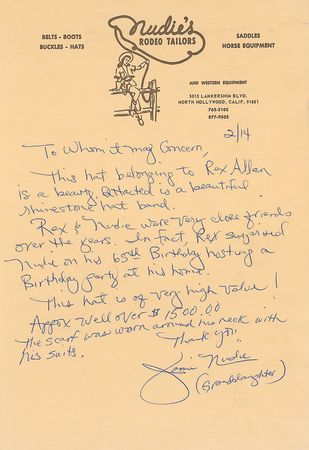 Nudie's
RODEO TAILORS
BELTS - BOOTS
BUCKLES - HATS
SADDLES
HORSE EQUIPMENT
AND WESTERN EQUIPMENT
5015 LANKERSHIM BLVD.
NORTH HOLLYWOOD, CALIF. 91601
762-3105
877-9505
2/14
To Whom it may Concern,
This hat belonging to Rex Allen
is a beauty. Attached is a beautiful
rhinestone hat band.
Rex & Nudie were very close friends
over the years. In fact, Rex surprised
Nudie on his 65th Birthday hosting a
Birthday party at his home.
This hat is of very high value!
Appox well over $1500.00
The scarf was worn around his neck with
his suits.
Thank you.
Jamie Nudie
(Granddaughter)